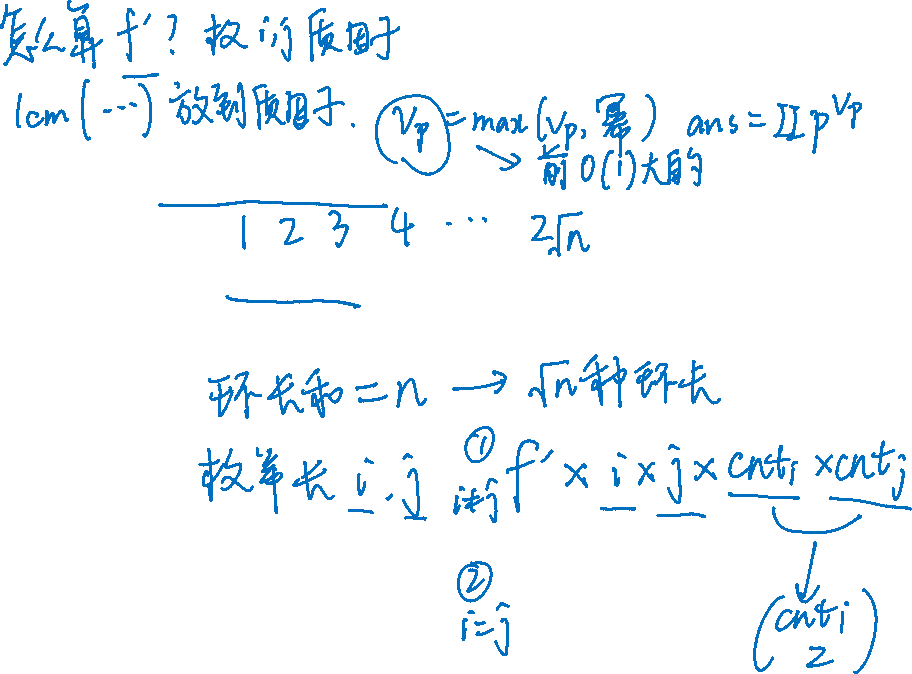 怎么算 f'? 枚 i,j 质因子
lcm(…) 放到质因子. Vp = max(Vp, 幂) ans = ∏ p^Vp
→ 前 O(1) 大的
1 2 3 4 … 2√n
环长和 = n → √n 种环长
枚举长 i, j ① i≠j f' × i × j × cnti × cntj
② i=j (cnti 2)